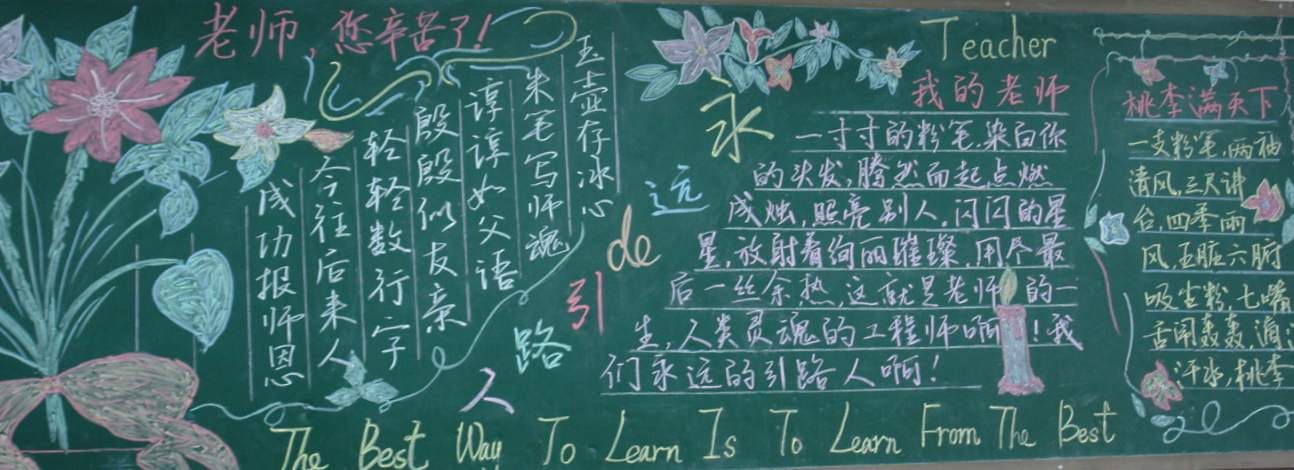 老师，您辛苦了！
玉壶存冰心
朱笔写师魂
谆谆如父语
殷殷似友亲
轻轻数行字
今往后来人
成功报师恩
永远de引路人
Teacher
我的老师
一寸寸的粉笔，染白你
的头发，腾然而起点燃
成烛，照亮别人，闪闪的星
星，放射着绚丽璀璨，用尽最
后一丝余热，这就是老师的一
生，人类灵魂的工程师啊！我
们永远的引路人啊！
桃李满天下
一支粉笔，两袖
清风，三尺讲
台，四季雨
风，五脏六腑
吸尘粉，七嘴
舌闹轰轰，滴
汗水，桃李
The Best Way To Learn Is To Learn From The Best